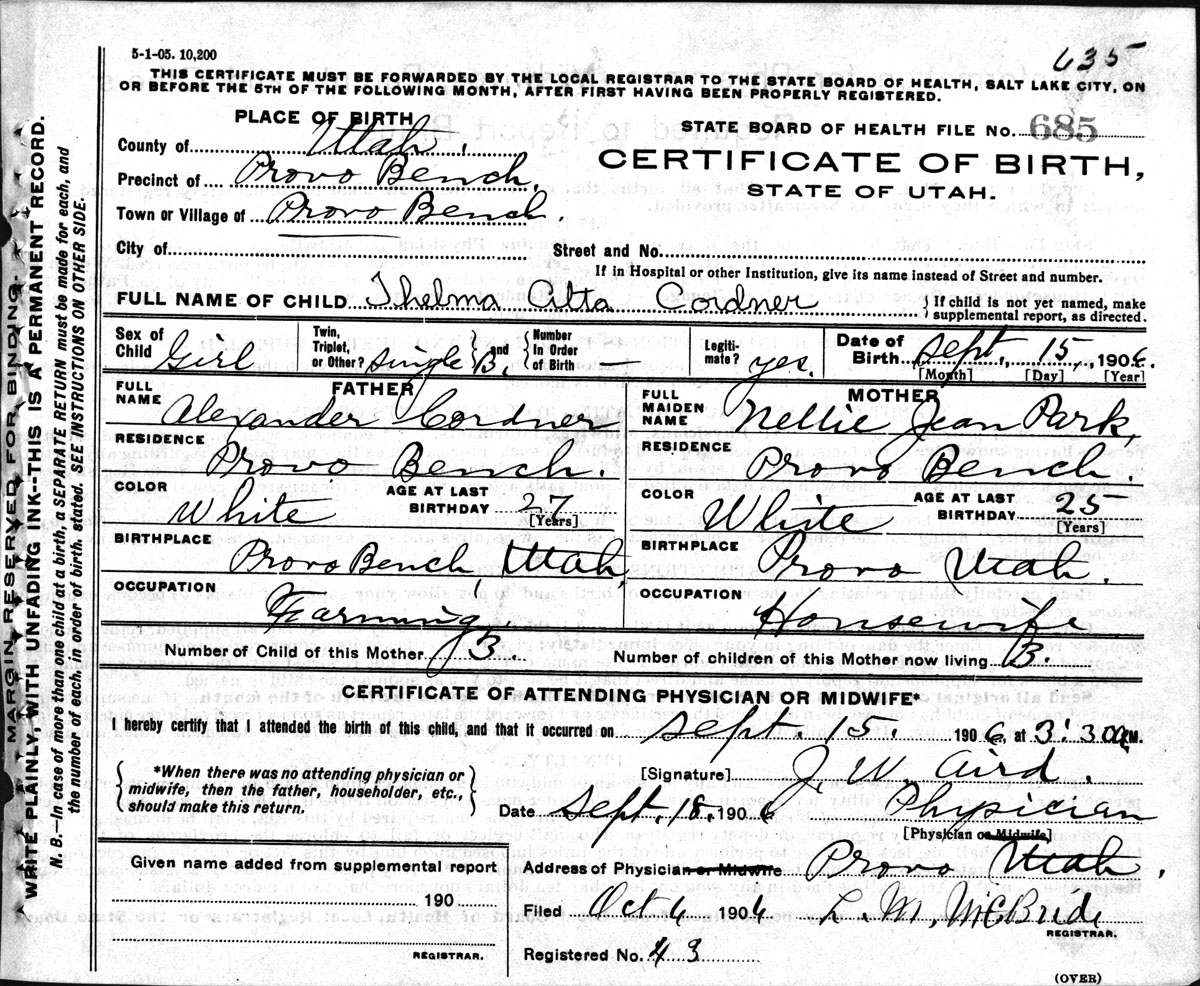 5-1-05. 10,200
635
THIS CERTIFICATE MUST BE FORWARDED BY THE LOCAL REGISTRAR TO THE STATE BOARD OF HEALTH, SALT LAKE CITY, ON
OR BEFORE THE 5TH OF THE FOLLOWING MONTH, AFTER FIRST HAVING BEEN PROPERLY REGISTERED.
PLACE OF BIRTH
STATE BOARD OF HEALTH FILE No. 685
County of Utah.
CERTIFICATE OF BIRTH,
Precinct of Provo Bench,
STATE OF UTAH.
Town or Village of Provo Bench.
City of
Street and No.
If in Hospital or other Institution, give its name instead of Street and number.
FULL NAME OF CHILD Thelma Alta Cordner } If child is not yet named, make supplemental report, as directed.
Sex of Child Girl
Twin, Triplet, or Other? single B. and
Number in Order of Birth —
Legiti-mate? yes.
Date of Birth Sept, 15, 1906.
[Month] [Day] [Year]
FATHER
FULL NAME Alexander Cordner
RESIDENCE Provo Bench.
COLOR White
AGE AT LAST BIRTHDAY 27
[Years]
BIRTHPLACE Provo Bench, Utah,
OCCUPATION Farming.
MOTHER
FULL MAIDEN NAME Nellie Jean Park,
RESIDENCE Provo Bench.
COLOR White
AGE AT LAST BIRTHDAY 25
[Years]
BIRTHPLACE Provo Utah.
OCCUPATION Housewife
Number of Child of this Mother 3.
Number of children of this Mother now living 3.
CERTIFICATE OF ATTENDING PHYSICIAN OR MIDWIFE*
I hereby certify that I attended the birth of this child, and that it occurred on Sept. 15. 1906, at 3:30 a.M.
{ *When there was no attending physician or midwife, then the father, householder, etc., should make this return. }
[Signature] J. W. Aird.
Date Sept. 18. 1906 Physician
[Physician or Midwife]
Given name added from supplemental report
190
REGISTRAR.
Address of Physician or Midwife Provo Utah.
Filed Oct 4 1906 L. M. McBride
REGISTRAR.
Registered No. 43
(OVER)
MARGIN RESERVED FOR BINDING.
WRITE PLAINLY, WITH UNFADING INK--THIS IS A PERMANENT RECORD.
N. B.—In case of more than one child at a birth, a SEPARATE RETURN must be made for each, and
the number of each, in order of birth, stated. SEE INSTRUCTIONS ON OTHER SIDE.